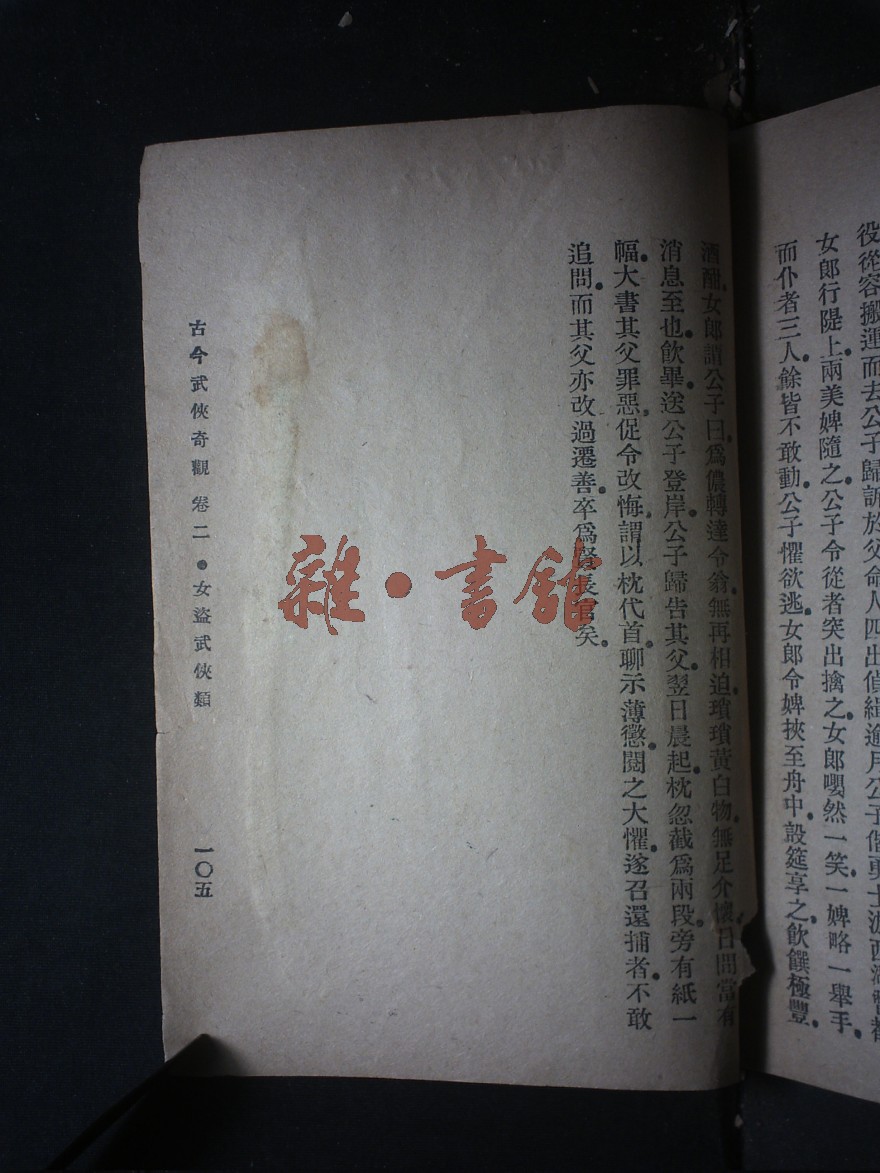 役從容搬運而去公子歸訴於父命人四出偵緝逾月公子偕勇士游西湖瞥
女郎行隄上兩美婢隨之公子令從者突出擒之女郎嚶然一笑一婢略一舉手
而仆者三人餘皆不敢動公子懼欲逃女郎令婢挾至舟中設筵享之飲饌極豐
酒酣女郎謂公子曰爲儂轉達令翁無再相迫瑣瑣黃白物無足介懷日間當有
消息至也飲畢送公子登岸公子歸告其父翌日晨起枕忽截爲兩段旁有紙一
幅大書其父罪惡促令改悔謂以枕代首聊示薄懲閱之大懼遂召還捕者不敢
追問而其父亦改過遷善卒爲賢長官矣
古今武俠奇觀 卷二 ●女盜武俠類 一〇五
雜·書館